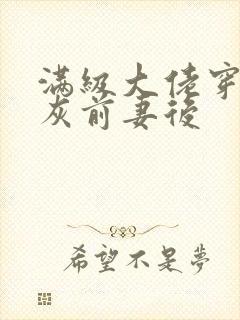 满級大佬穿
灰前妻後
希望不是夢